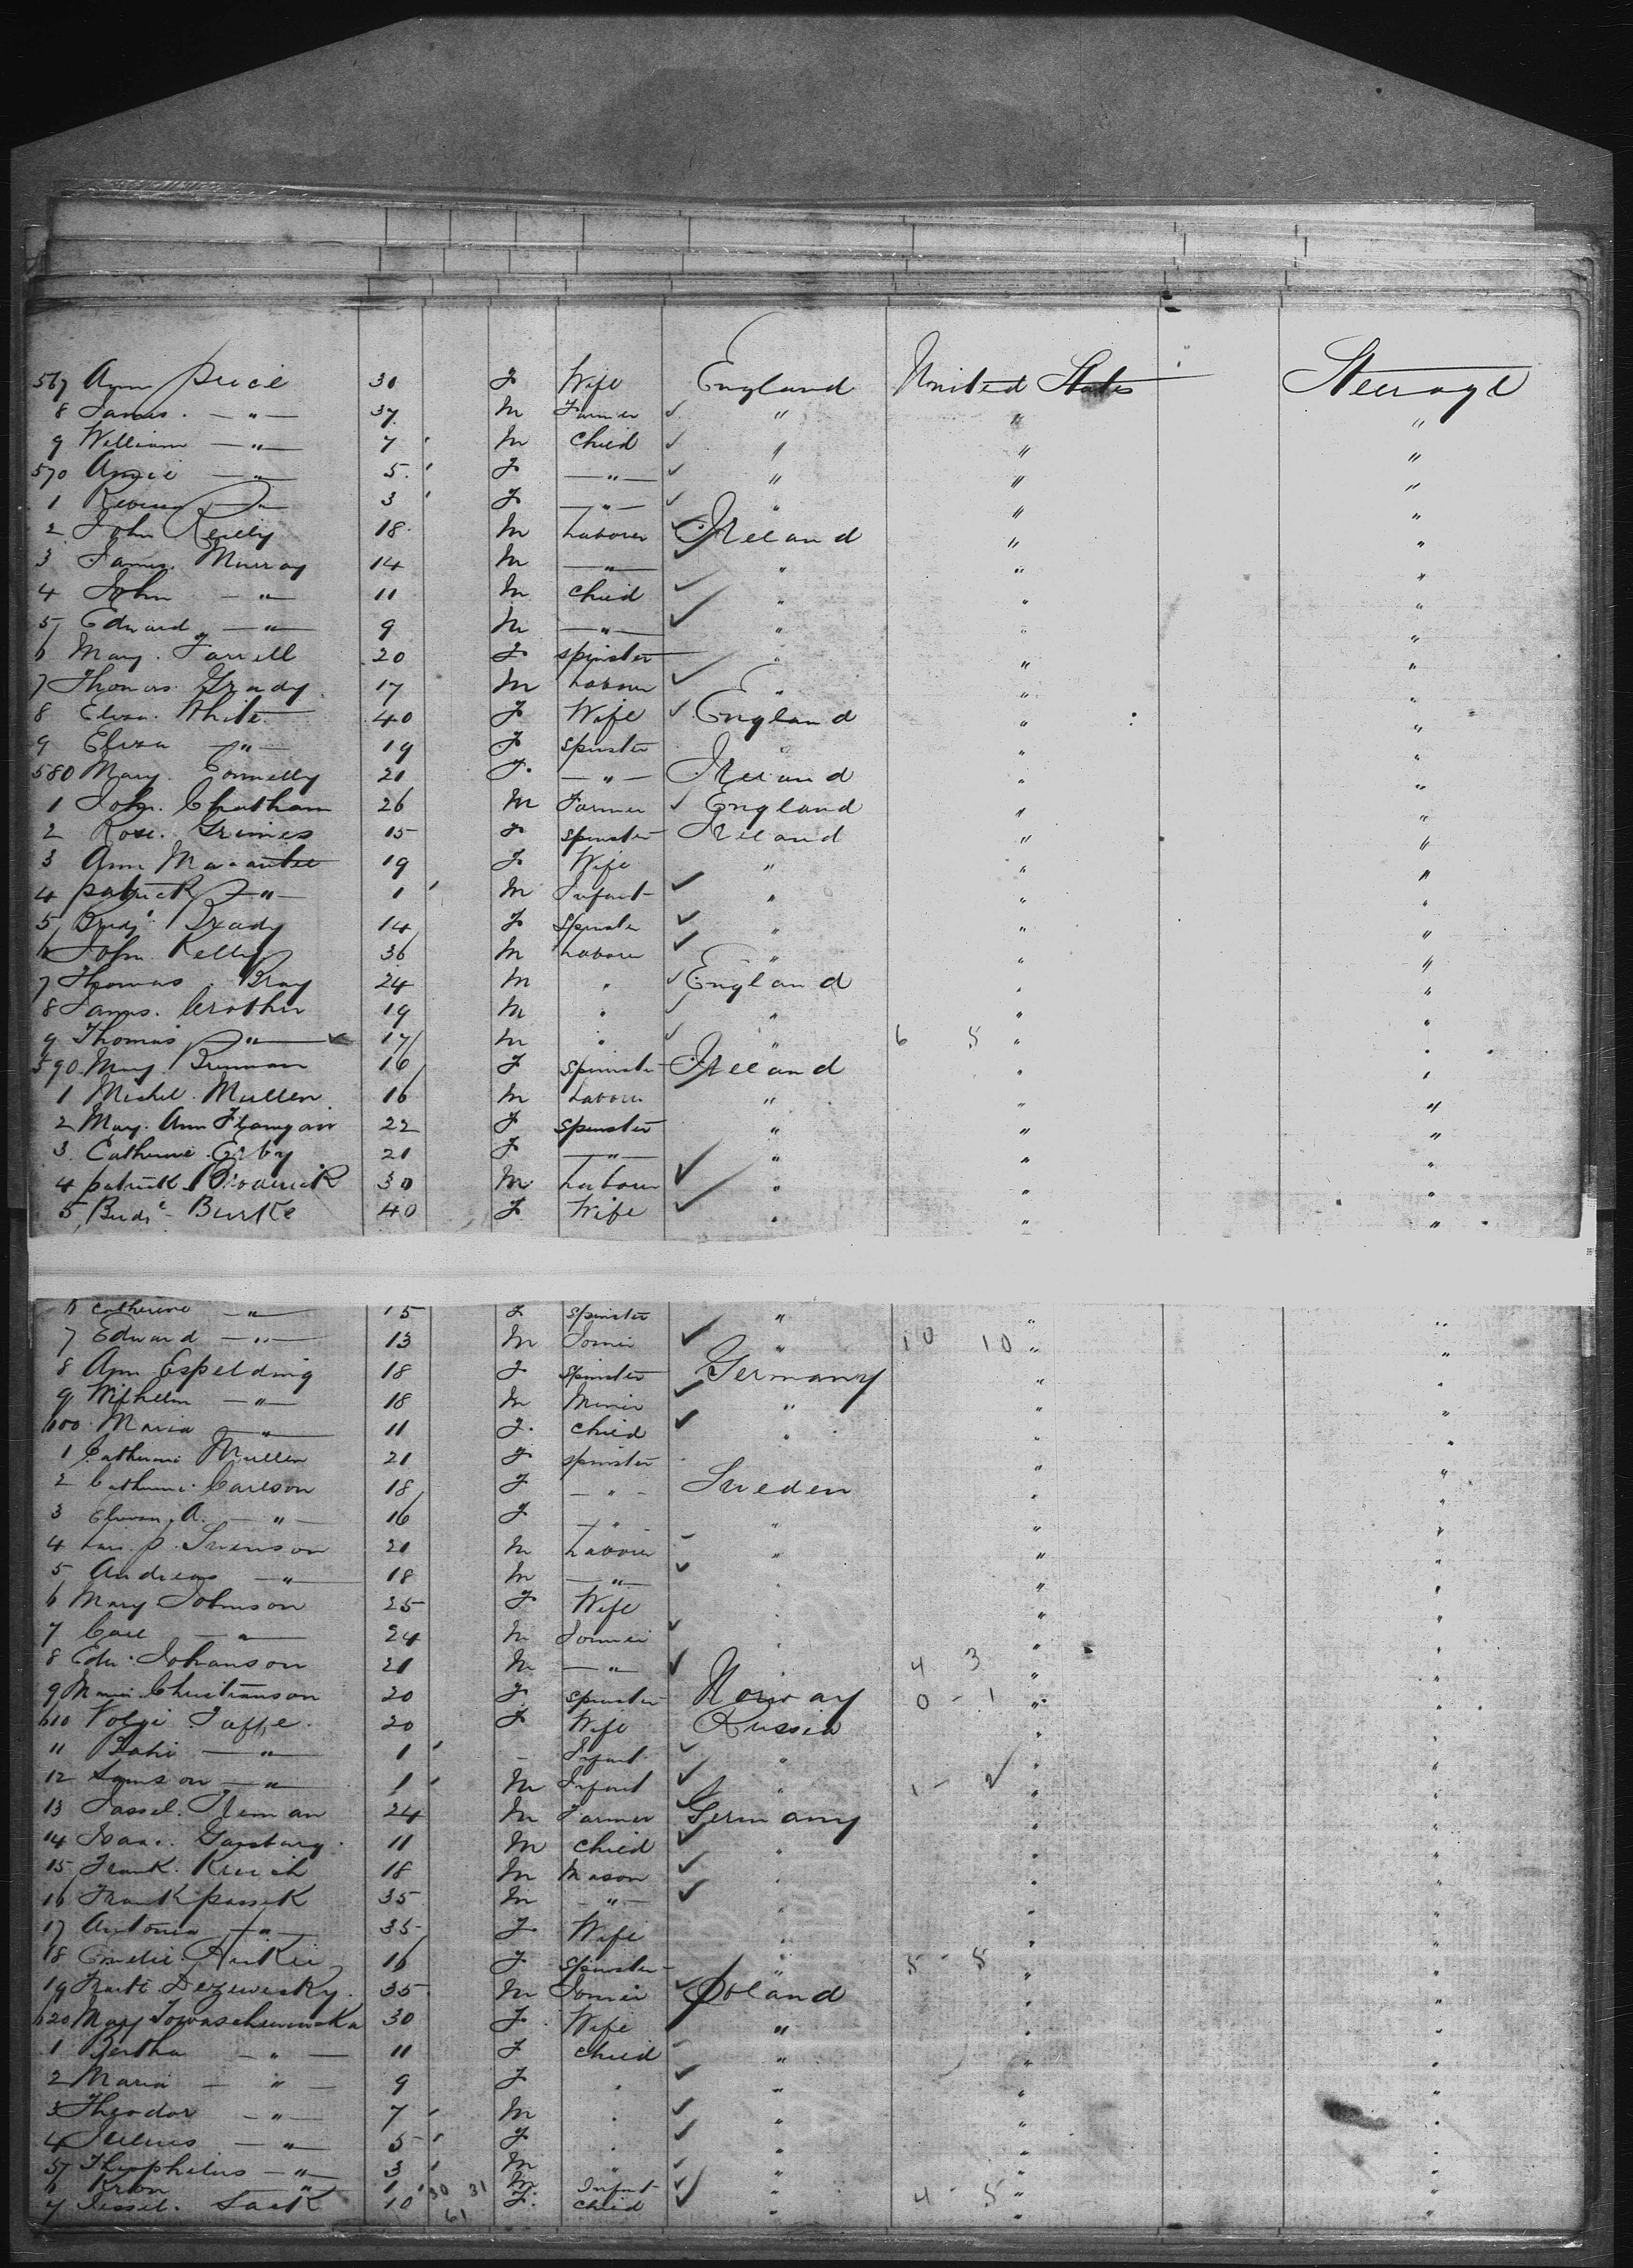 567 Ann Price 30 F Wife England United States Steerage
8 James. — " — 37 M Farmer ✓ " " "
9 William — " — 7 ' M Child ✓ " " "
570 — " — 5 ' F — " — ✓ " " "
1 — " — 3 ' F — " — ✓ " " "
2 John Reilly 18 M Laborer ✓ Ireland " "
3 James. Murray 14 M — " — ✓ " " "
4 John — " — 11 M Child ✓ " " "
5 Edward — " — 9 M — " — ✓ " " "
6 Mary. Farrell 20 F Spinster " " "
7 Thomas. Grady 17 M Labour ✓ " " "
8 Eliza. White 40 F Wife ✓ England " "
9 Eliza — " — 19 F Spinster " " "
580 Mary. Connelly 21 F — " — Ireland " "
1 John. Chatham 26 M Farmer ✓ England " "
2 Rose. Grimes 15 F Spinster Ireland " "
3 Ann 19 F Wife " " "
4 Patrick — " — 1 ' M Infant ✓ " " "
5 Bridgt Brady 14 F Spinster ✓ " " "
6 John Kelly 36 M Labour ✓ " " "
7 Thomas. Bray 24 M " ✓ England " "
8 James. Crother 19 M " ✓ " " "
9 Thomas — " — 17 M " ✓ " 6 5 " "
590 Mary. Brennan 16 F Spinster Ireland " "
1 Michel. Mullen 16 M Labour " " "
2 Mary. Ann Flanigan 22 F Spinster " " "
3 Catherine. 21 F — " — " " "
4 Patrick. Broderick 30 M Labour ✓ " " "
5 Burke 40 F Wife ✓ " " "
6 Catherine — " — 15 F Spinster " " "
7 Edward — " — 13 M ✓ " 10 10 " "
8 Ann Espelding 18 F Spinster Germany " "
9 Wilhelm — " — 18 M Miner ✓ " " "
600 Maria — " — 11 F Child ✓ " " "
1 Catherine Mullen 21 F Spinster " "
2 Catherine. Carlson 18 F — " — Sweden " "
3 A. — " — 16 F — " — " " "
4 Lars. P. Swenson 21 M Laborer ✓ " " "
5 Andreas — " — 18 M — " — ✓ " " "
6 Mary Johnson 25 F Wife " " "
7 Carl — " — 24 M ✓ " " "
8 Edw. Johanson 21 M — " — ✓ " 4 3 " "
9 Christianson 20 F Spinster Norway 0 - 1 " "
610 Jaffe. 20 F Wife Russia " "
11 — " — 1 ' - Infant ✓ " " "
12 Samson — " — 1 ' M Infant ✓ " 1 - 2 " "
13 24 M Farmer ✓ Germany " "
14 Isaac. 11 M Child ✓ " " "
15 Frank. 18 M Mason ✓ " " "
16 Frank 35 M — " — ✓ " " "
17 Antonia — " — 35 F Wife " " "
18 16 F Spinster " 5 - 5 " "
19 35 M ✓ Poland " "
620 Mary 30 F Wife " " "
1 Bertha — " — 11 F Child ✓ " " "
2 Maria — " — 9 F " ✓ " " "
3 Theodor — " — 7 ' M " ✓ " " "
4 Julius — " — 5 ' F " ✓ " " "
5 Theophelus — " — 3 ' M " ✓ " " "
6 — " — 1 ' 30 31 M Infant ✓ " " "
7 Sack 10 61 F Child ✓ " 4 - 5 " "